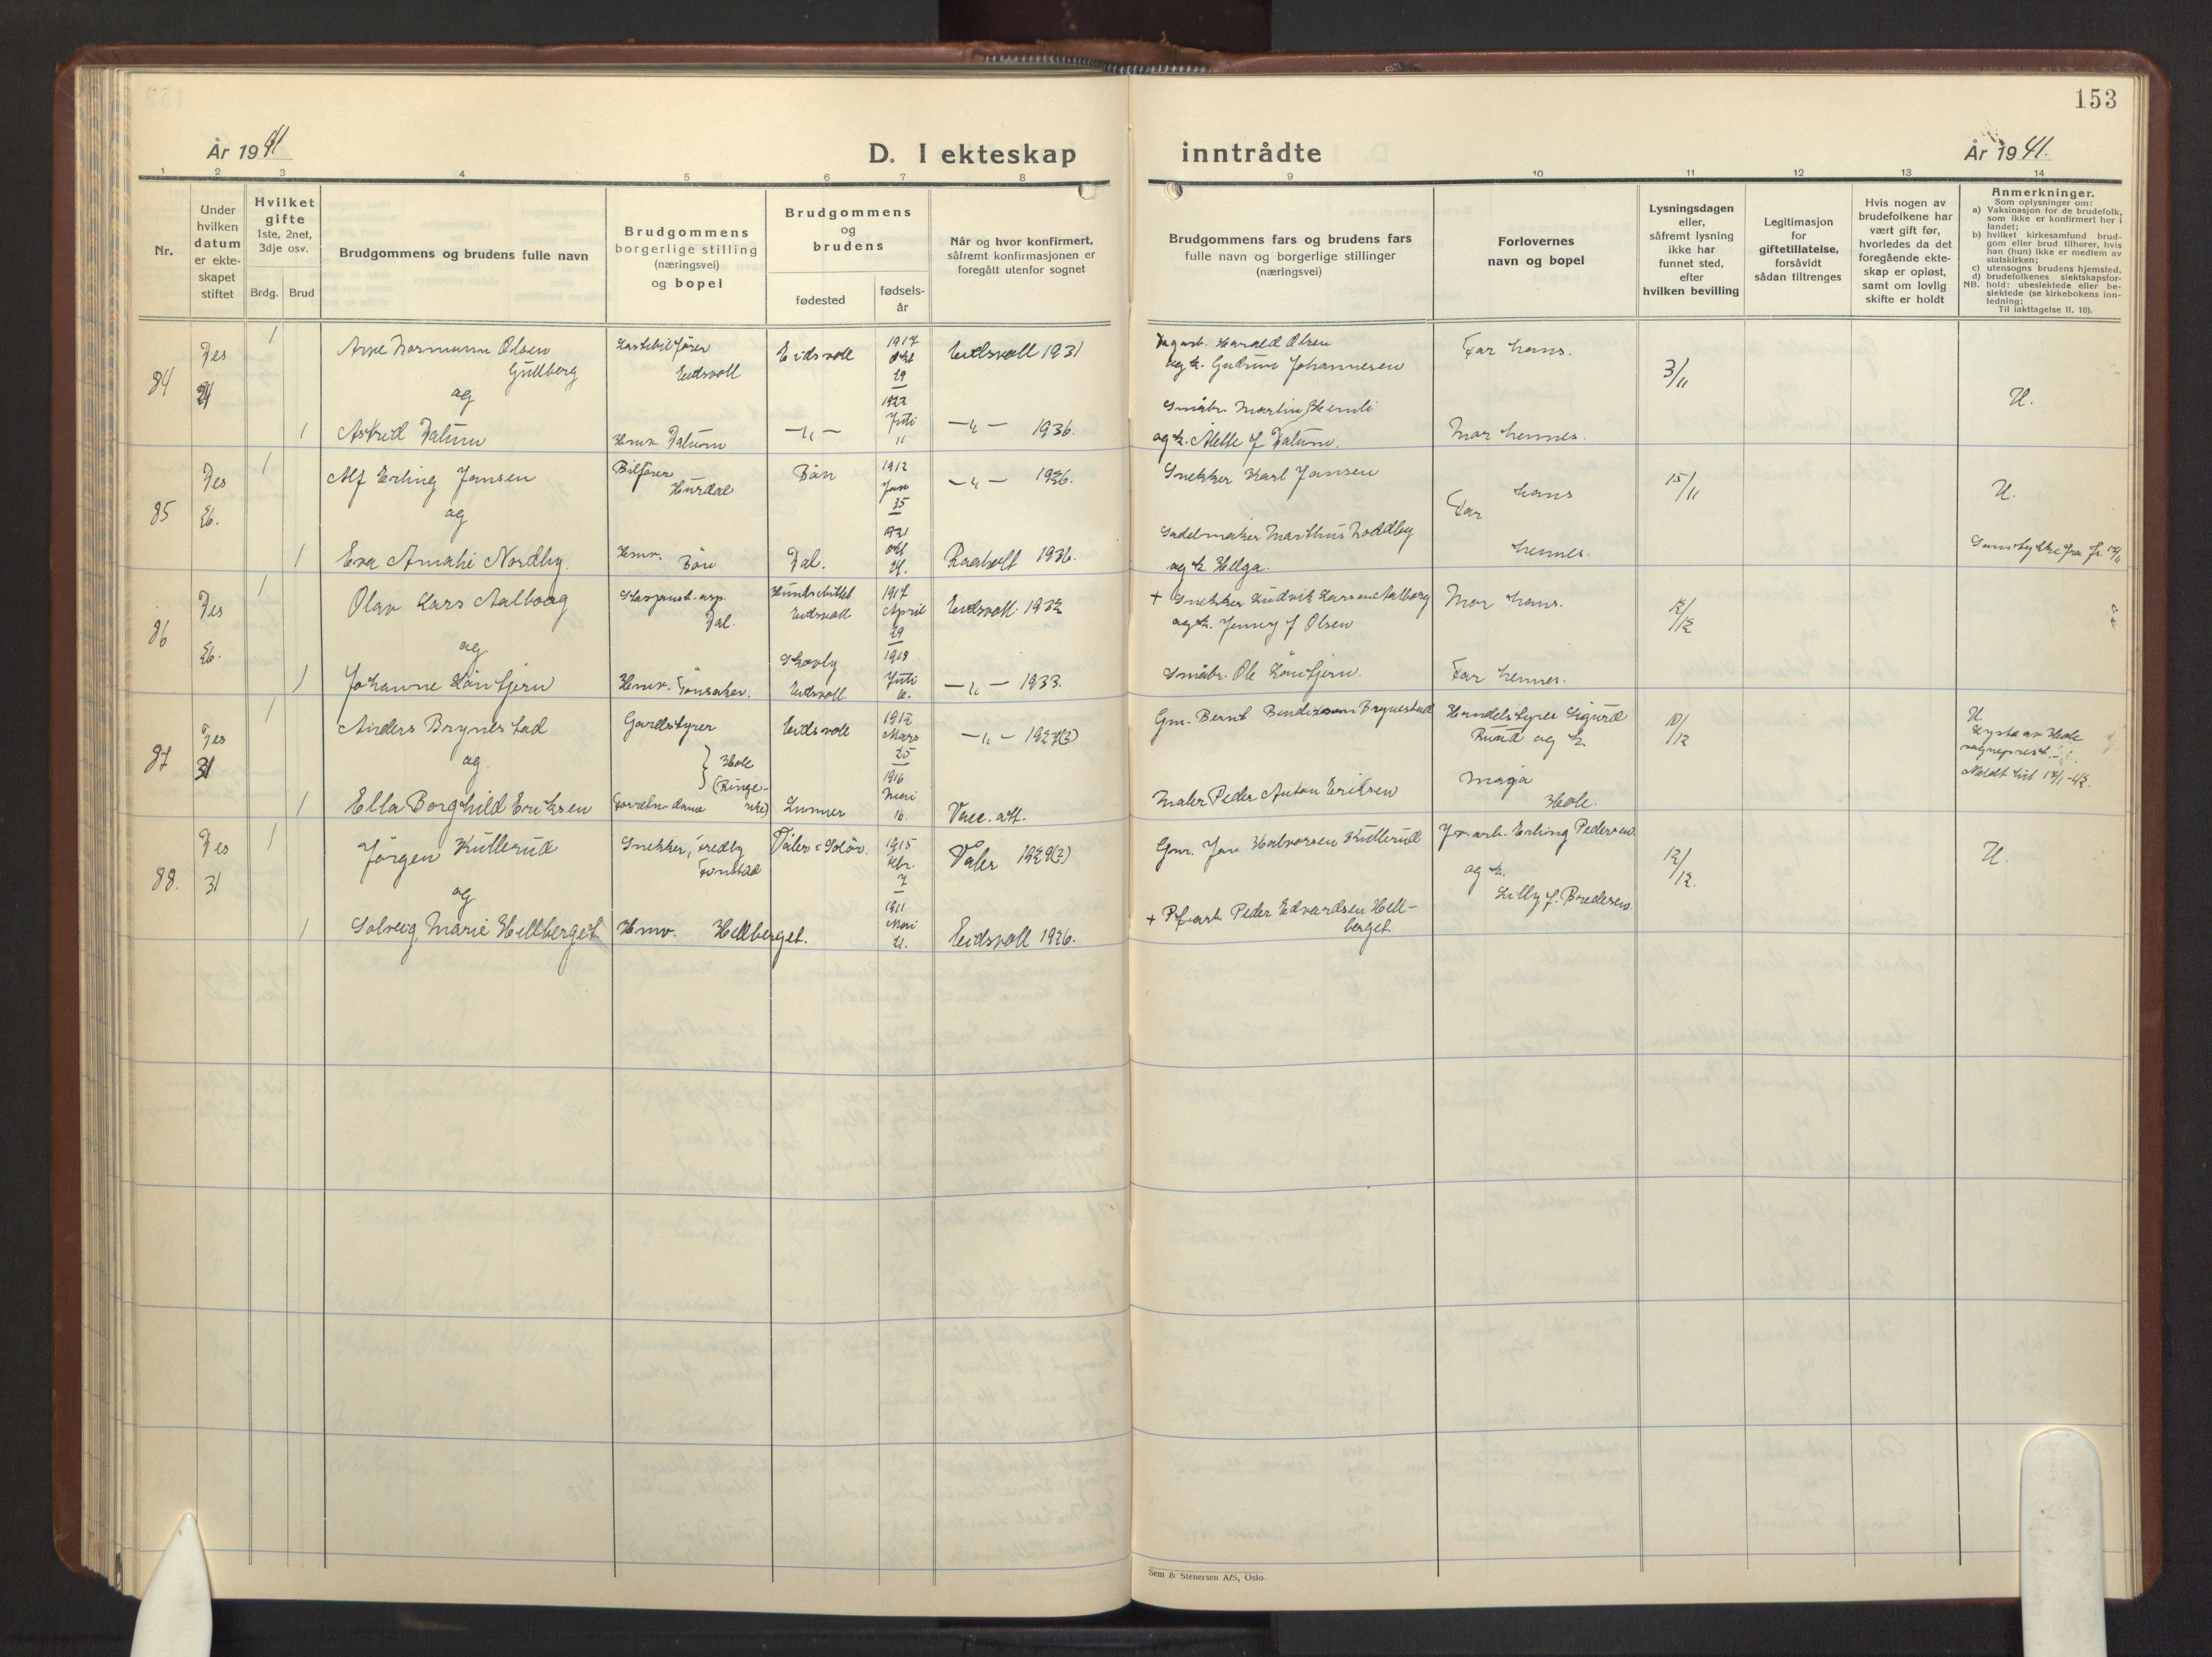 153
År 1941
D. I ekteskap inntrådte
År 1941.
1 2 3 4 5 6 7 8 9 10 11 12 13 14
Nr.
Under
hvilken
datum
er ekte-
skapet
stiftet
Hvilket
gifte
1ste, 2net,
3dje osv.
Brdg. Brud
Brudgommens og brudens fulle navn
Brudgommens
borgerlige stilling
(næringsvei)
og bopel
Brudgommens
og
brudens
fødested
fødsels-
år
Når og hvor konfirmert,
såfremt konfirmasjonen er
foregått utenfor sognet
Brudgommens fars og brudens fars
fulle navn og borgerlige stillinger
(næringsvei)
Forlovernes
navn og bopel
Lysningsdagen
eller,
såfremt lysning
ikke har
funnet sted,
efter
hvilken bevilling
Legitimasjon
for
giftetillatelse,
forsåvidt
sådan tiltrenges
Hvis nogen av
brudefolkene har
vært gift før,
hvorledes da det
foregående ekte-
skap er opløst,
samt om lovlig
skifte er holdt
Anmerkninger.
Som oplysninger om:
a) Vaksinasjon for de brudefolk,
som ikke er konfirmert her i
landet;
b) hvilket kirkesamfund brud-
gom eller brud tilhører, hvis
han (hun) ikke er medlem av
statskirken;
c) utensogns brudens hjemsted.
d) brudefolkenes slektskapsfor-
NB. hold: ubeslektede eller be-
slektede (se kirkebokens inn-
ledning;
Til iakttagelse II, 10).
84
Des
1
Arne Normann Olsen
Gullberg
og
1 Astrid Dalum
Lastebilfører
Eidsvoll
Hmv. Dalum
Eidsvoll
-"-
1917
Okt
29
1922
Juli
11
Eidsvoll 1931
-"- 1936.
Harald Olsen
og h. Gudrun Johannesen
Småbr. Martin
og h. Alette f Dalum.
Far hans.
Mor hennes.
3/11
U.
85
Des
26.
1
Alf Erling Jansen
og
1 Eva Amalie Nordby.
Bilfører
Hurdal
Hmv.
Bön
Bön
Dal.
1912
Jan
25
1921
Okt
-"- 1926.
Raaholt 1936.
Snekker Karl Jansen
Sadelmaker Marthus Noddby
og h. Helga.
Far
hans
hennes.
15/11
U.
Samtykke fra
86
Des
26.
1
Olav Lars Aalborg
og
1 Johanne Löntjern
Dal.
Hmv.
Eidsvoll
Skovly
Eidsvoll
1917
April
29
1918
Juli
6.
Eidsvoll 1932
-"- 1933.
+ Snekker Ludvik Larsen Aalborg
og h. Jenny f Olsen
Småbr. Ole Löntjern.
Mor hans.
Far hennes.
12/12
87
Des
31
1
Anders Brynestad
og
1 Ella Borghild Eriksen
Gardstyrer
Hole
(Ringe-
rike)
Eidsvoll
Lunner
1912
Mars
25
1916
Mai
16.
-"- 1927(?)
Vacc. att.
Gm. Bernt Bendiksen Brynestad
Maler Peder Anton Eriksen
Sigurd
Ruud og h
Maja
Hole.
10/12
U.
Lyst av Hole
sogneprest
88.
Des
31
1
Jørgen Kullerud
og
1 Solveig Marie Hellberget
Snekker, Fredly
Hmv. Hellberget.
Våler i Solör.
1915
Febr.
7
1911
Mai
Våler 1929(?)
Eidsvoll 1926.
Gm. Jon Halvorsen Kullerud
+ Peder Edvardsen Hell-
berget
Erling Pedersen
og h.
Lilly f. Bredesen.
12/12.
U.
Sem & Stenersen A/S, Oslo